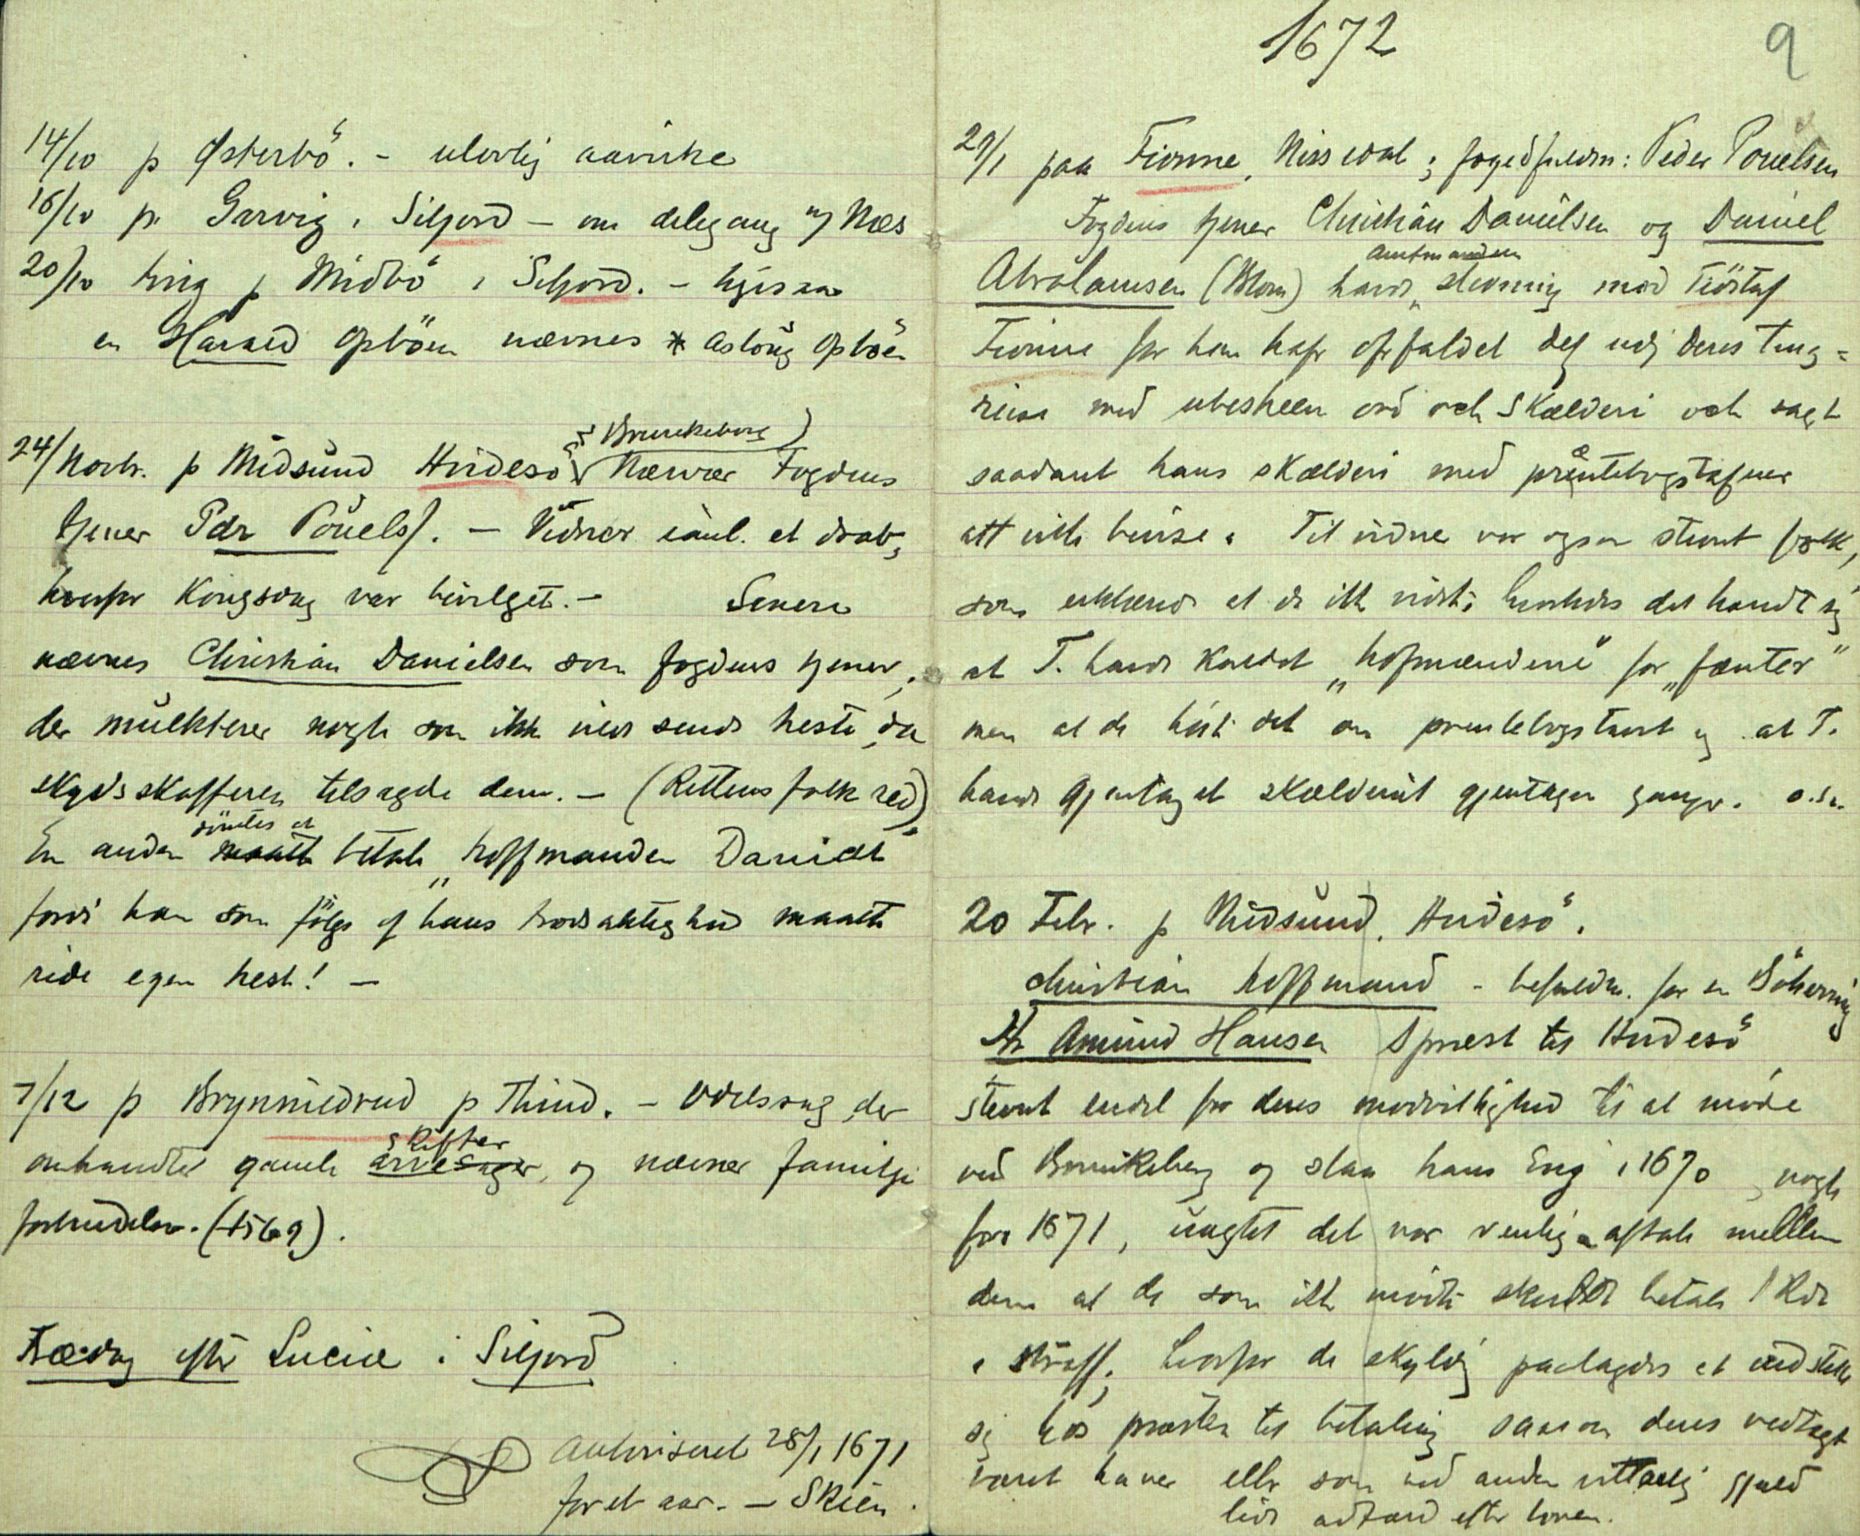 14/10 p Østerbö. - ulovlig aavirke
16/10 p Garvig i Siljord - om delegang m/ Næs
20/10 ting p Midbö i Seljord. -
en Harald Opböen nævnes Aslöug Opböen
24/Novbr. p Midsund Hvidesö (Brunkeberg) Nærvær Fogdens
tjener Pdr Pöuels/. - Vidner i anl. et drab,
hvorfor Kongsdag var bevilget. - Senere
nævnes Christian Danielsen som fogdens tjener,
der mulkterer nogle som ikke vilde sende heste, da
skydsskafferen tilsagde dem. - (Rettens folk red)
En anden maatte dömtes at betale "hoffmanden Daniel"
fordi han som fölge af hans trodsaktighed maatte
ride egen hest! -
7/12 p Brynnildrud p Thind. - Odelssag, der
omhandler gamle arvesager skifter, og nævner familje
forbindelser. (1569).
Tredag efter Luciæ i Siljord
Autoriseret 28/1 1671
for et aar. - Skien.
1672
9
29/1 paa Fionne, Nissedal; fogedfuldm: Peder Pouelsen
Fogdens tjener Christian Danielsen og Daniel
Abrahamsen (Blom) havde amtmanden stevning mod Tiöstaf
Fionne for han hafr ofrfaldet dej udj deres Ting=
reise med ubesheen ord och Skælderi och sagt
saadant hans skælderi med prentebogstafuer
att ville bevise. Til vidner var ogsaa stevnt folk,
som erklærede at de ikke vidste hvorledes det havde sig
at T. havde kaldet "hofmændene" for "fanter"
men at de hörte det om prentebogstavet og at T.
havde gjentaget skælderiet gjentagne ganger. o.s.v.
20 Febr. p Midsund. Hvidesö.
Christian hoffmand - befuldm. for en Söherring
Hr Amund Hansen Spræst til Hvidesö
stevnt endel for deres modvillighed til at möde
ved Brunkeberg og slaa hans Eng i 1670, nogle
for 1671, uagtet det var venlig aftale mellem
dem at de som ikke mödte skulde betale 1 Rdr
i straff; hvorfor de skyldig paalagdes at indstille
sig hos præsten til betaling saasom deres vedtagt
været haver eller som ved anden vitterlig gjæld
lide adfærd efter loven.